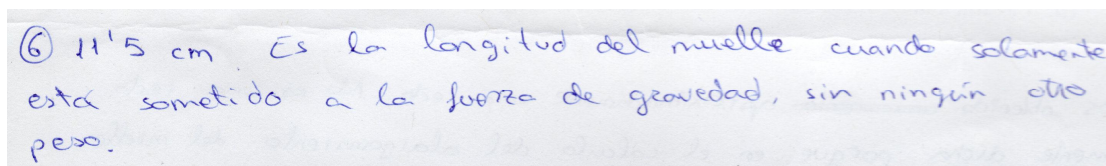 ⑥ 11'5 cm. Es la longitud del muelle cuando solamente
está sometido a la fuerza de gravedad, sin ningún otro
peso.